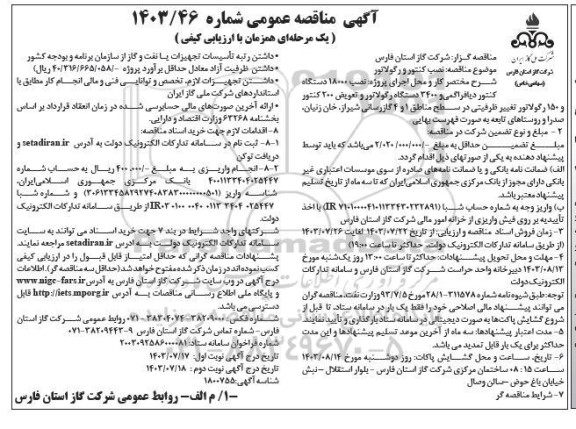 آگهی مناقصه عمومی شماره ۱۴۰۳/۴۶
( یک مرحله‌ای همزمان با ارزیابی کیفی )
شرکت گاز استان فارس
(سهامی خاص)
مناقصه گزار: شرکت گاز استان فارس
موضوع مناقصه: نصب کنتور و رگولاتور
۱- شرح مختصر کار و محل اجرای پروژه: نصب ۱۸۰۰۰ دستگاه
کنتور دیافراگمی و ۳۴۰۰ دستگاه رگولاتور و تعویض ۲۰۰ کنتور
و ۱۵۰ رگولاتور تغییر ظرفیتی در سطح مناطق ۱ و ۴ گازرسانی شیراز، خان زنیان،
صدرا و روستاهای تابعه به صورت فهرست بهایی
۲- مبلغ و نوع تضمین شرکت در مناقصه:
مبلغ تضمین حداقل به مبلغ /۲/۰۲۰/۰۰۰/۰۰۰ می‌باشد که باید توسط
پیشنهاد دهنده به یکی از صورتهای ذیل اقدام گردد.
الف) ضمانت نامه بانکی و یا ضمانت نامه‌های صادره از سوی موسسات اعتباری غیر
بانکی دارای مجوز از بانک مرکزی جمهوری اسلامی ایران که تا سه ماه از تاریخ تسلیم
پیشنهاد معتبر باشد.
ب) واریز وجه به شماره حساب شبا با اخذ
تأییدیه بر روی فیش واریزی از خزانه امور مالی شرکت گاز استان فارس
۳- زمان فروش اسناد مناقصه و ارزیابی: از تاریخ ۱۴۰۳/۰۷/۲۲ لغایت ۱۴۰۳/۰۷/۲۶
(از طریق سامانه تدارکات الکترونیک دولت حداکثر تا ساعت ۱۹:۰۰)
۴- مهلت و محل تحویل پیشنهادات: حداکثر تا ساعت ۱۳:۰۰ روز یکشنبه مورخ
۱۴۰۳/۰۸/۱۳ دبیرخانه واحد حراست شرکت گاز استان فارس و سامانه تدارکات
الکترونیک دولت
توجه: طبق شیوه نامه شماره ۲۸/۱-۳۱۱۵۷۸ مورخ ۹۳/۷/۵ وزارت نفت، مناقصه گران
می توانند پیشنهاد مالی اصلاحی خود را فقط یک بار در سامانه ستاد، تا قبل از
شروع گشایش پاکت‌ها به صورت دیجیتالی در سامانه ستاد بارگذاری و تأیید نمایند.
۵- مدت اعتبار پیشنهادها: سه ماه از آخرین موعد تسلیم پیشنهادها و این مدت
حداکثر برای یک بار قابل تمدید می باشد.
۶- تاریخ، ساعت و محل گشایش پاکات: روز دوشنبه مورخ ۱۴۰۳/۰۸/۱۴
ساعت ۰۸:۱۵ ساختمان مرکزی شرکت گاز استان فارس - بلوار استقلال – نبش
خیابان باغ حوض – سالن وصال
۷- شرایط مناقصه گر
-داشتن رتبه تأسیسات تجهیزات یا نفت و گاز از سازمان برنامه و بودجه کشور
-داشتن ظرفیت آزاد معادل حداقل برآورد پروژه (/۴۰/۳۱۶/۶۶۵/۰۵۸ ریال)
-داشتن تجهیزات لازم، تخصص و توانایی فنی و مالی انجام کار مطابق با
استانداردهای شرکت ملی گاز ایران
-ارائه آخرین صورت‌های مالی حسابرسی شده در زمان انعقاد قرارداد بر اساس
بخشنامه ۶۳۲۶۸ وزارت اقتصاد و دارایی.
۸- اقدامات لازم جهت خرید اسناد مناقصه:
۸-۱- ثبت نام در سامانه تدارکات الکترونیک دولت به آدرس setadiran.ir و
دریافت توکن
۸-۲- انجام واریزی به مبلغ /۴۰۰,۰۰۰ ریال به حساب شماره
۴۰۰۱۱۱۳۴۰۴۰۲۵۴۴۷ بانک مرکزی جمهوری اسلامی ایران،
شناسه واریز و شماره شبا
از طریق سامانه تدارکات الکترونیک
دولت.
شرکتهای واجد شرایط در بند ۷ جهت خرید اسناد می توانند به سایت
سامانه تدارکات الکترونیک دولت به آدرس setadiran.ir مراجعه نمایند.
پیشنهادات مناقصه گرانی که حداقل امتیاز قابل قبول را در ارزیابی کیفی
کسب نموده‌اند در زمان ذکر شده مفتوح خواهد شد (حداقل سه مناقصه گر). اطلاعات
درج آگهی در وب سایت شرکت گاز استان فارس به آدرس www.nigc-fars.ir
و پایگاه ملی اطلاع رسانی مناقصات به آدرس http://iets.mporg.ir قابل
دسترسی می باشد.
شماره فکس: ۳۸۲۰۴۰۷۴-۳۸۲۰۹۰۰۰-۰۷۱ روابط عمومی شرکت گاز استان
فارس- شماره تماس شرکت گاز استان فارس ۹-۰۷۱-۳۸۲۰۹۴۴۳
شماره فراخوان سامانه ستاد: ۲۰۰۳۰۹۲۵۸۶۰۰۰۰۸۱
تاریخ درج آگهی نوبت اول: ۱۴۰۳/۰۷/۱۷
تاریخ درج آگهی نوبت دوم: ۱۴۰۳/۰۷/۱۸
شناسه آگهی: ۱۸۰۰۷۵۵
۱/ م الف- روابط عمومی شرکت گاز استان فارس